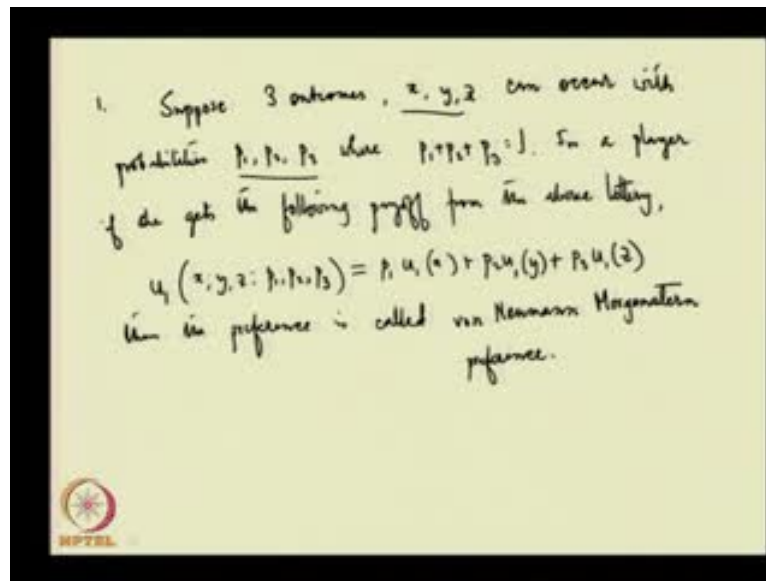 1. Suppose 3 outcomes, x, y, z can occur with
probabilities p₁, p₂, p₃ where p₁+p₂+p₃=1. For a player
if she gets the following payoff from the above lottery,
u₁(x, y, z : p₁, p₂, p₃) = p₁ u₁(x) + p₂ u₁(y) + p₃ u₁(z)
then the preference is called von Neumann Morgenstern
preference.
NPTEL